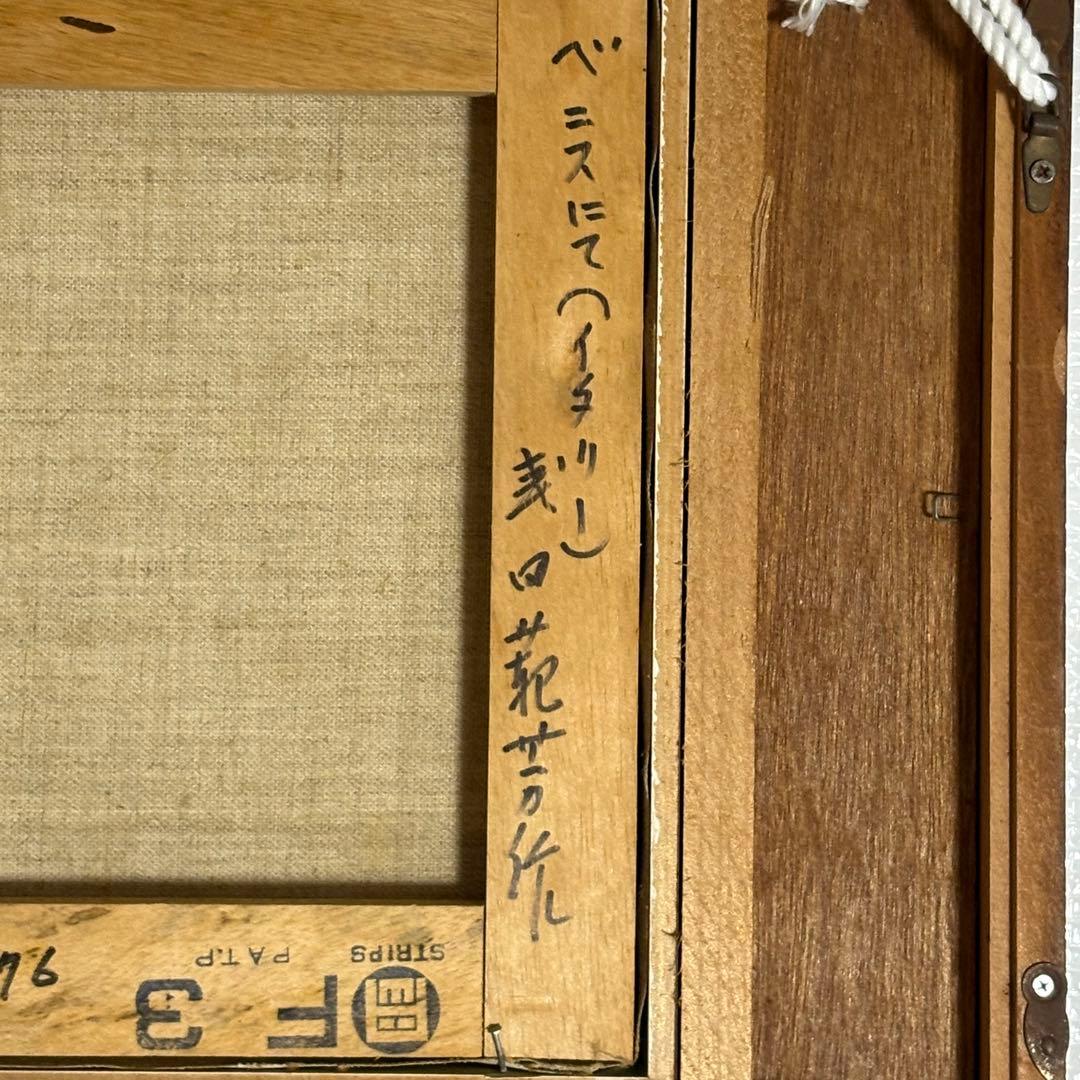 ベニスにて(イタリー)
浅田範芳作
76
STRIPS
P A T. P
F 3